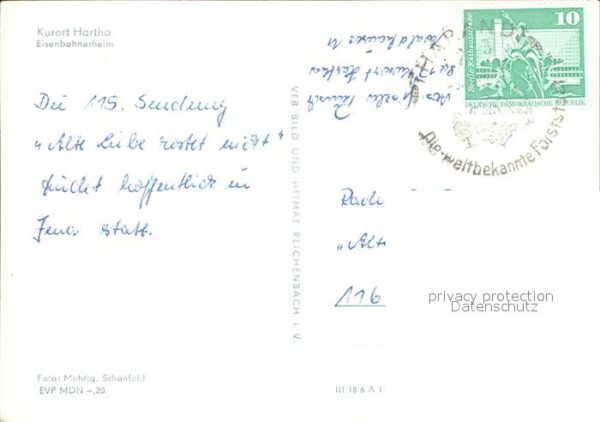 Kurort Hartha
Eisenbahnerheim
Die 115. Sendung
„Alte Liebe rostet nicht"
findet hoffentlich in
Jena statt.
Foto: Mehlig, Schönfeld
EVP MDN –,20
VEB BILD UND HEIMAT REICHENBACH i. V.
8217 Kurort Hartha
10
Berlin, Rathausstraße
DEUTSCHE DEMOKRATISCHE REPUBLIK
THARANDT
Die weltbekannte Forststadt
Radi
„Alt
116
privacy protection
Datenschutz
III 18 6 A 1